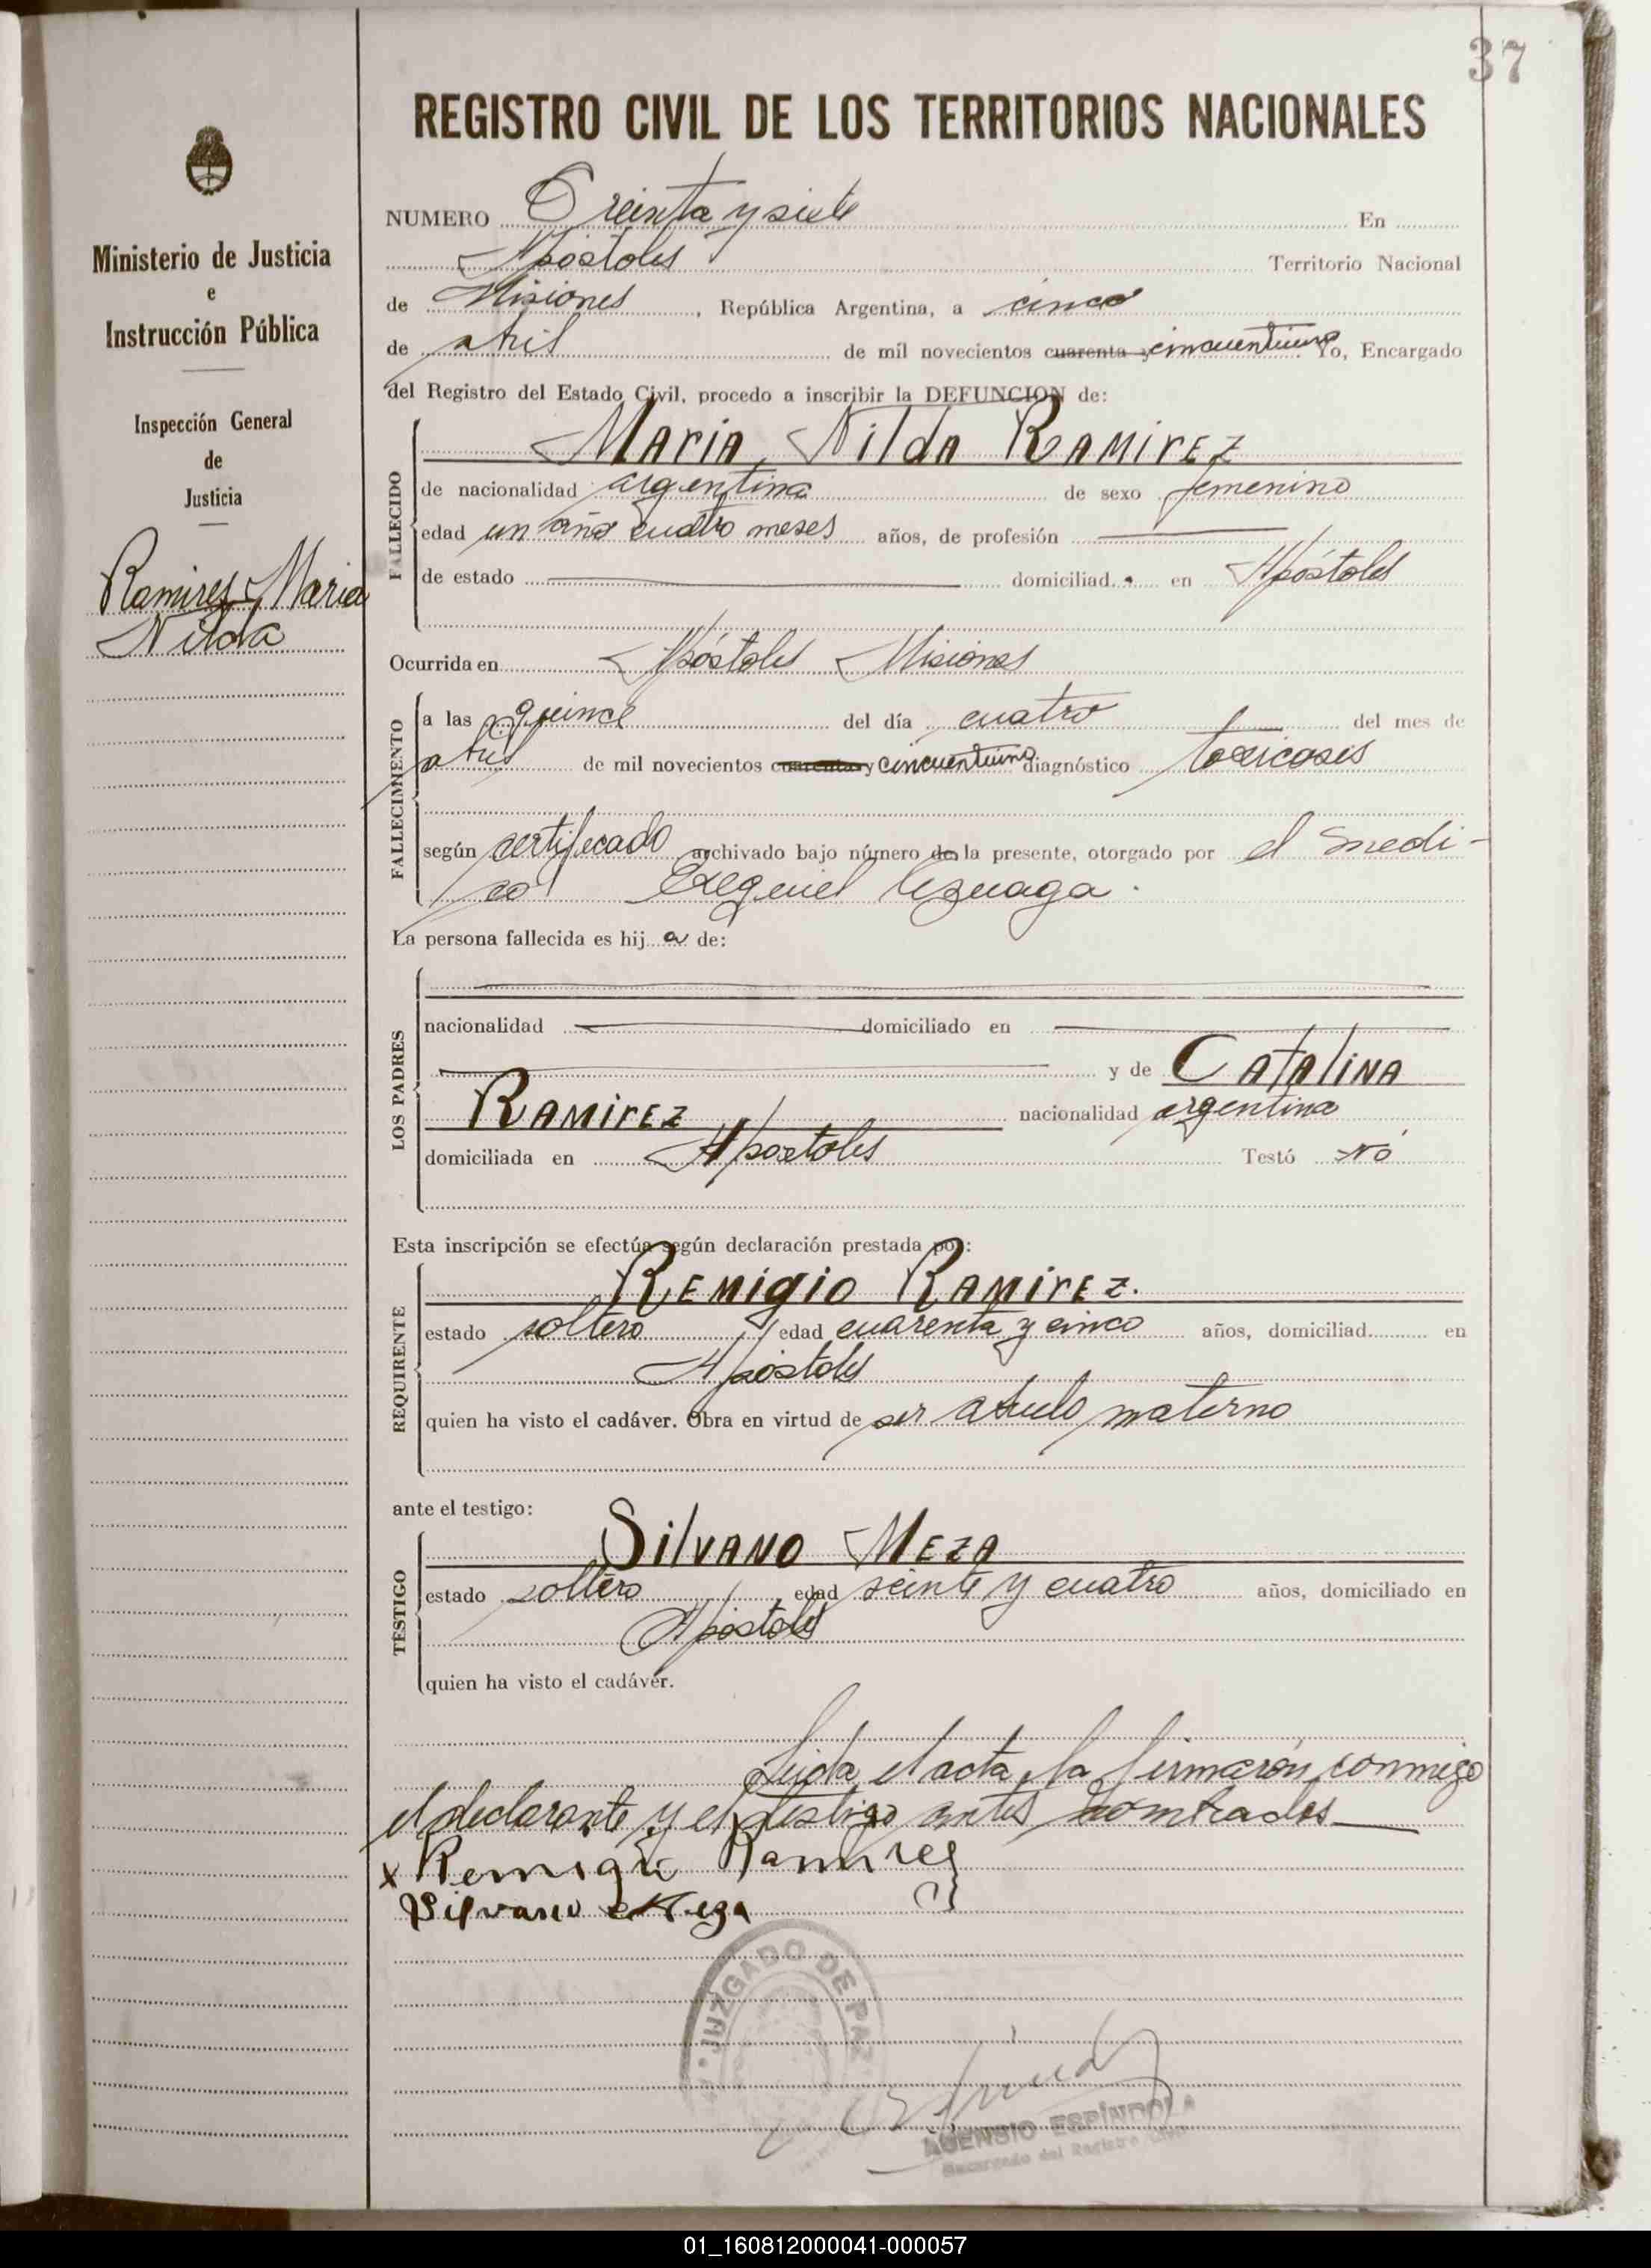 37
REGISTRO CIVIL DE LOS TERRITORIOS NACIONALES
Ministerio de Justicia
e
Instrucción Pública
Inspección General
de
Justicia
Ramires Maria
Nilda
NUMERO Treinta y siete En
Apóstoles Territorio Nacional
de Misiones, República Argentina, a cinco
de abril de mil novecientos cuarenta y cincuentiuno. Yo, Encargado
del Registro del Estado Civil, procedo a inscribir la DEFUNCION de:
MARIA NILDA RAMIREZ
FALLECIDO
de nacionalidad argentina de sexo femenino
edad un año cuatro meses años, de profesión
de estado domiciliad a en Apóstoles
Ocurrida en Apóstoles Misiones
FALLECIMIENTO
a las quince del día cuatro del mes de
abril de mil novecientos cuarenta y cincuentiuno diagnóstico toxicosis
según certificado archivado bajo número de la presente, otorgado por el medi-
co Exequiel
La persona fallecida es hij a de:
LOS PADRES
nacionalidad domiciliado en
y de CATALINA
RAMIREZ nacionalidad argentina
domiciliada en Apostoles Testó Nó
Esta inscripción se efectúa según declaración prestada por:
REMIGIO RAMIREZ.
REQUIRENTE
estado soltero edad cuarenta y cinco años, domiciliad en
Apóstoles
quien ha visto el cadáver. Obra en virtud de ser abuelo materno
ante el testigo:
SILVANO MEZA
TESTIGO
estado soltero edad veinte y cuatro años, domiciliado en
Apóstoles
quien ha visto el cadáver.
Leida el acta, la firmarón conmigo
el declarante y el testigo antes nombrados
x Remigio Ramires
Silvano Meza
JUZGADO DE PAZ
ASENSIO ESPÍNDOLA
Encargado del Registro Civil
01_160812000041-000057